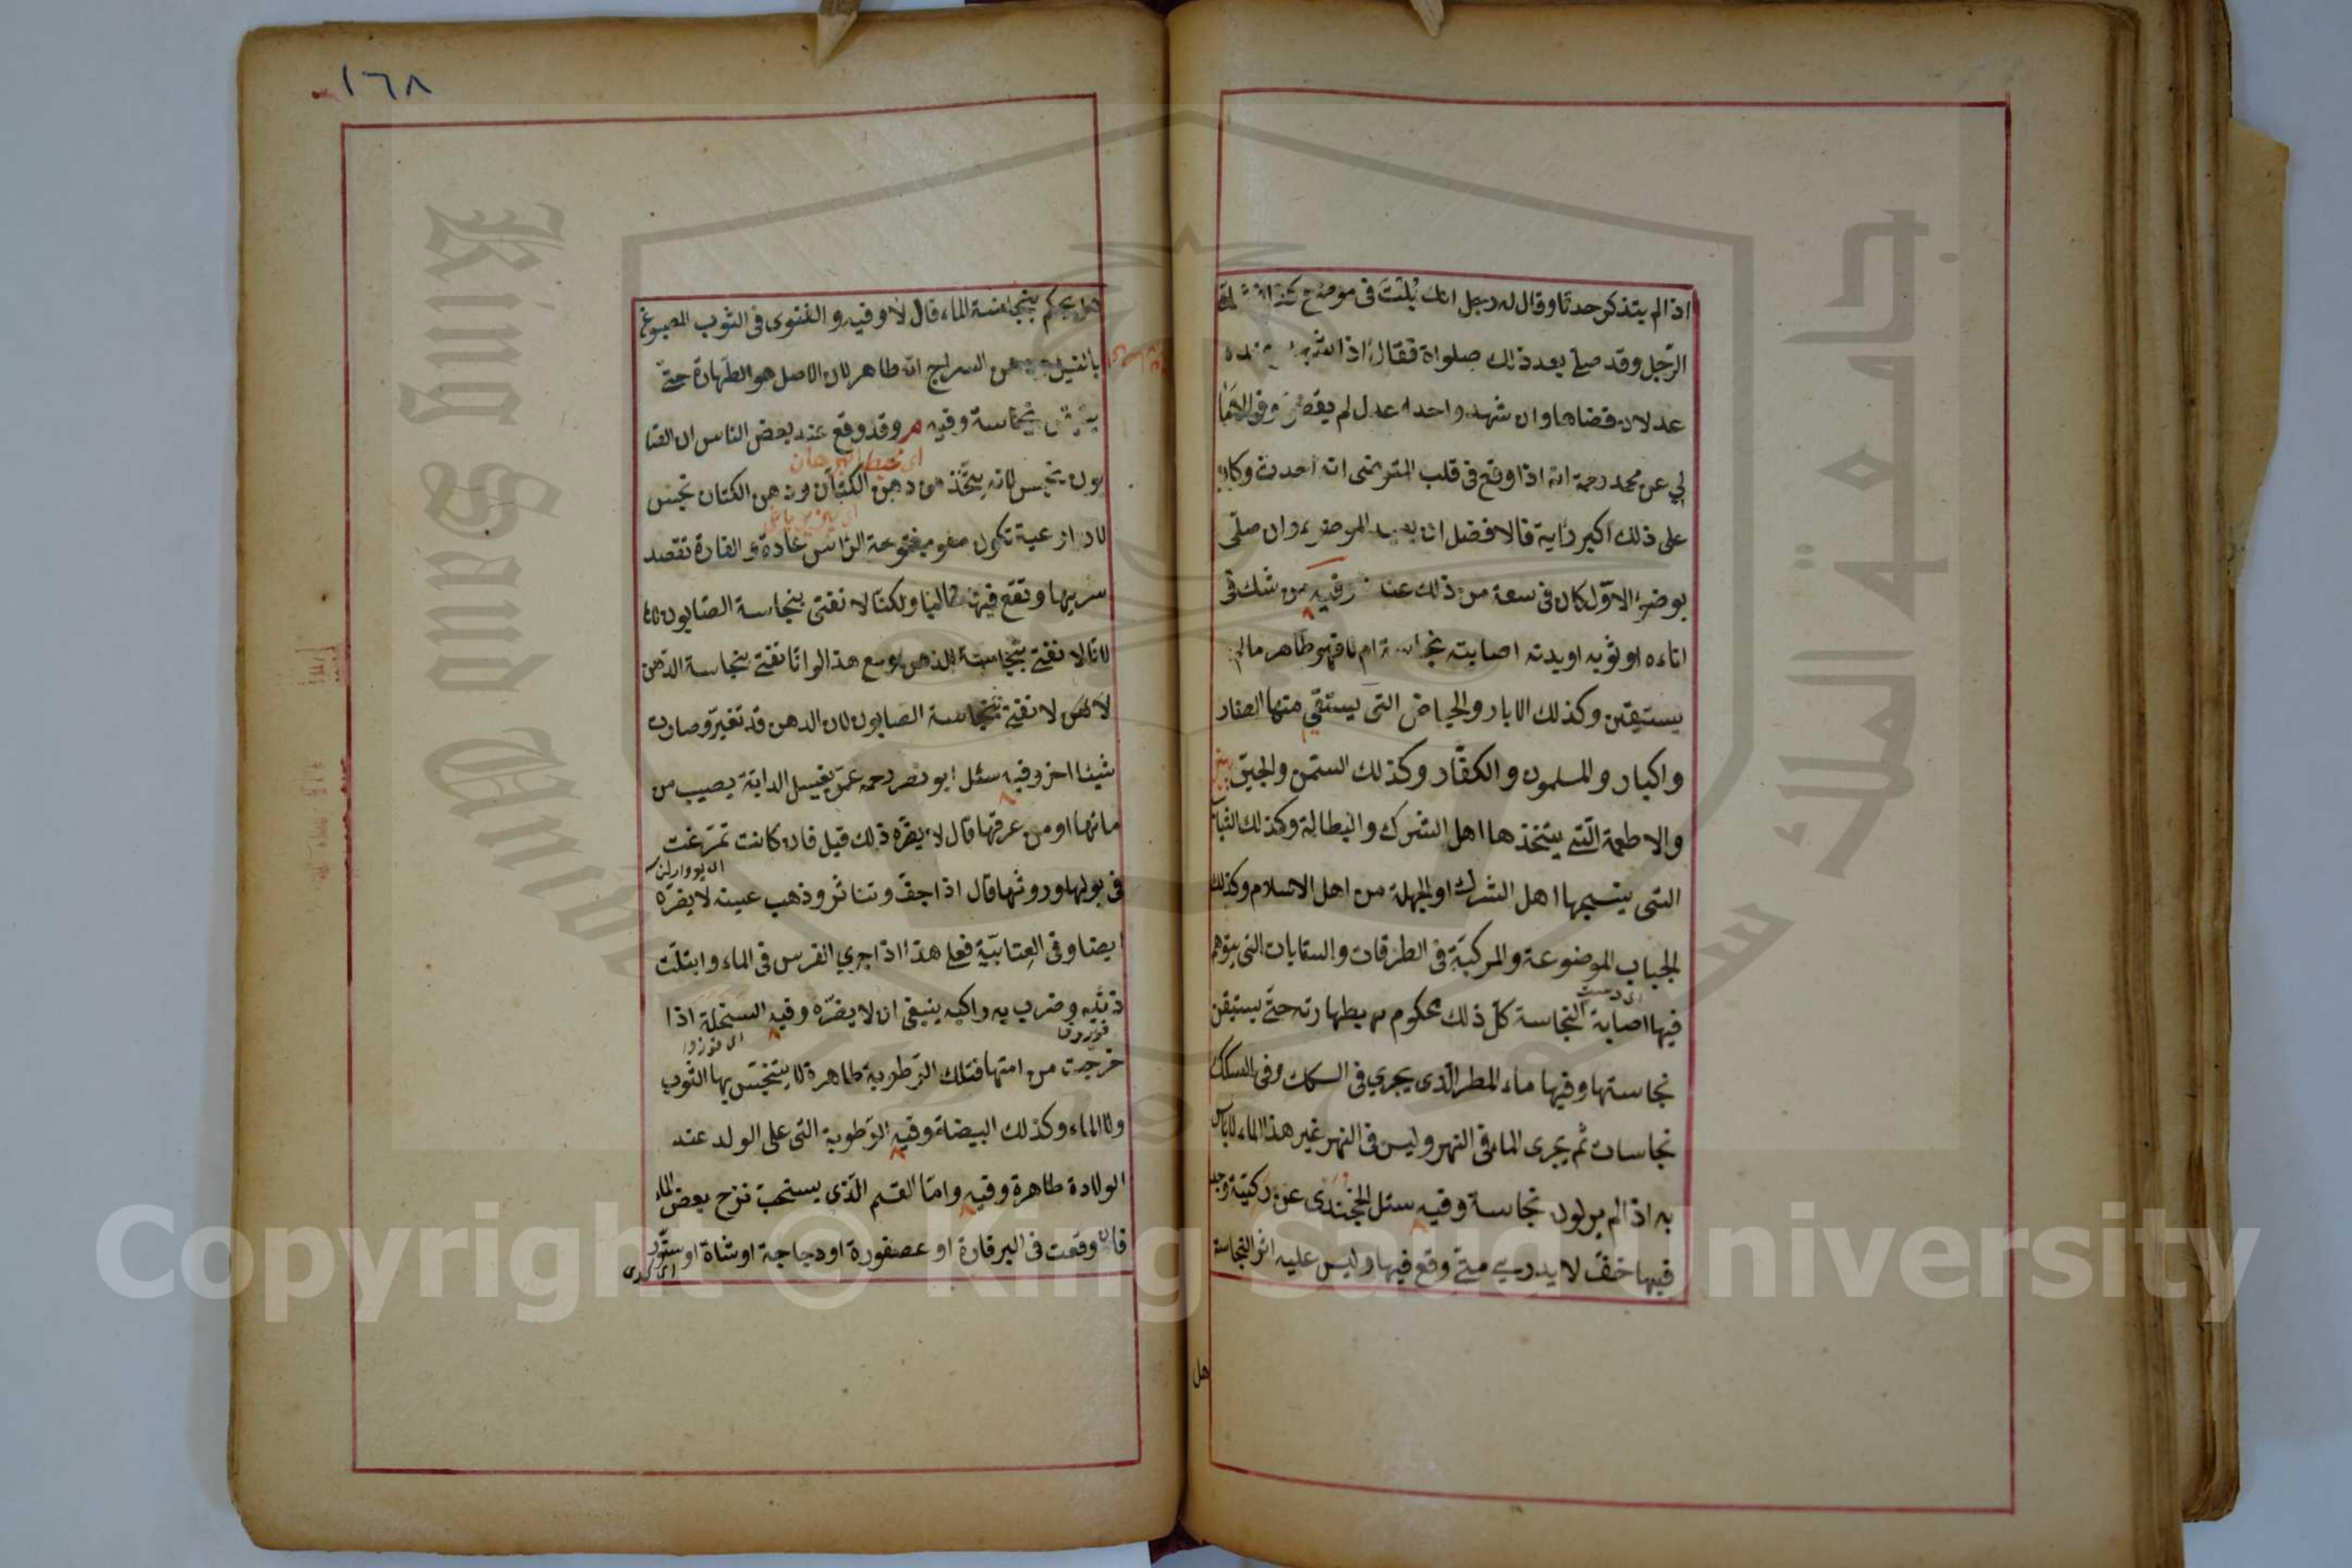 اذا لم يتذكر حدثا وقال له رجل انك بُلْتَ فى موضع كذا
الرّجل وقد صلّے بعد ذلك صلواة فقال اذا شهد عنده
عدلان قضاها وان شهد واحدا عدل لم يقض وفى الاما
لي عن محمد رحمة انه اذا وقع فى قلب المتوضى انه احدث وكان
على ذلك اكبر رأية فالافضل ان يعيد الوضوء وان صلّى
بوضوئه الاوّل كان فى سعة من ذلك عندنا وفيه من شك فى
اناءه او ثوبه او بدنه اصابته نجاسة ام لا فهو طاهر مالم
يستيقن وكذلك الابار والحياض التى يستقي منها الصغار
واكبار والمسلمون والكفّار وكذلك السّمن والجبن
والاطعمة الّتے يتّخذها اهل الشرك والبطالة وكذلك الثيا
التى ينسجها اهل الشرك او الجهلة من اهل الاسلام وكذلك
الجباب الموضوعة والمركبّة فى الطرقات والسقايات التى يتوهم
فيها اصابة النجاسة كلّ ذلك محكوم بطهارته حتّے يستيقن
نجاستها وفيها ماء المطر الّذى يجري فى السكك وفى السكك
نجاسات ثم يجرى الماء فى النهر وليس فى النهر غير هذا الماء لا باس
به اذا لم ير لون نجاسة وفيه سئل الخجندى عن ركيّة وجد
فيها خفّ لا يدرے متے وقع فيها وليس عليه اثر النجاسة
هل
١٦٨
هل يحكم بنجاسة الماء قال لا وفيه والفتوى فى الثوب المصبوغ
بالنيل السراج انّه طاهر لان الاصل هو الطهارة حتّے
بنجاسة وفيه وقد وقع عند بعض الناس ان الصا
بون نجس لانه يتّخذ من دهن الكتّان ودهن الكتان نجس
لان اوعية تكون مفتوحة الرّاس عادة والفارة تقصد
شربها وتقع فيها غالبا ولكنّا لا نفتى بنجاسة الصّابون
لانّا لا نفتے بنجاسة الدهن ومع هذا لو انّا نفتے بنجاسة الدّهن
لا نفتے بنجاسة الصابون لان الدهن قد تغيّر وصارت
شيئا اخر وفيه سئل ابو نصر رحمه عمّن يغسل الدابّة يصيب من
مائها او من عرقها قال لا يضرّه ذلك قيل فان كانت تمرّغت
فى بولها وروثها قال اذا جفّ وتناثر وذهب عينه لا يضرّه
ايضا وفى العتابيّة فعلے هذا اذا جرى الفرس فى الماء وابتلّت
ذنبه وضرب به راكبه ينبغى ان لا يضرّه وفيه السخلة اذا
خرجت من امّها فتلك الرّطوبة طاهرة لا يتنجّس بها الثوب
ولا الماء وكذلك البيضة وفيه الرّطوبة التى على الولد عند
الولادة طاهرة وفيه وامّا القسم الّذى يستحبّ نزح بعض الماء
فان وقعت فى البير فارة او عصفورة او دجاجة او شاة او سنّور